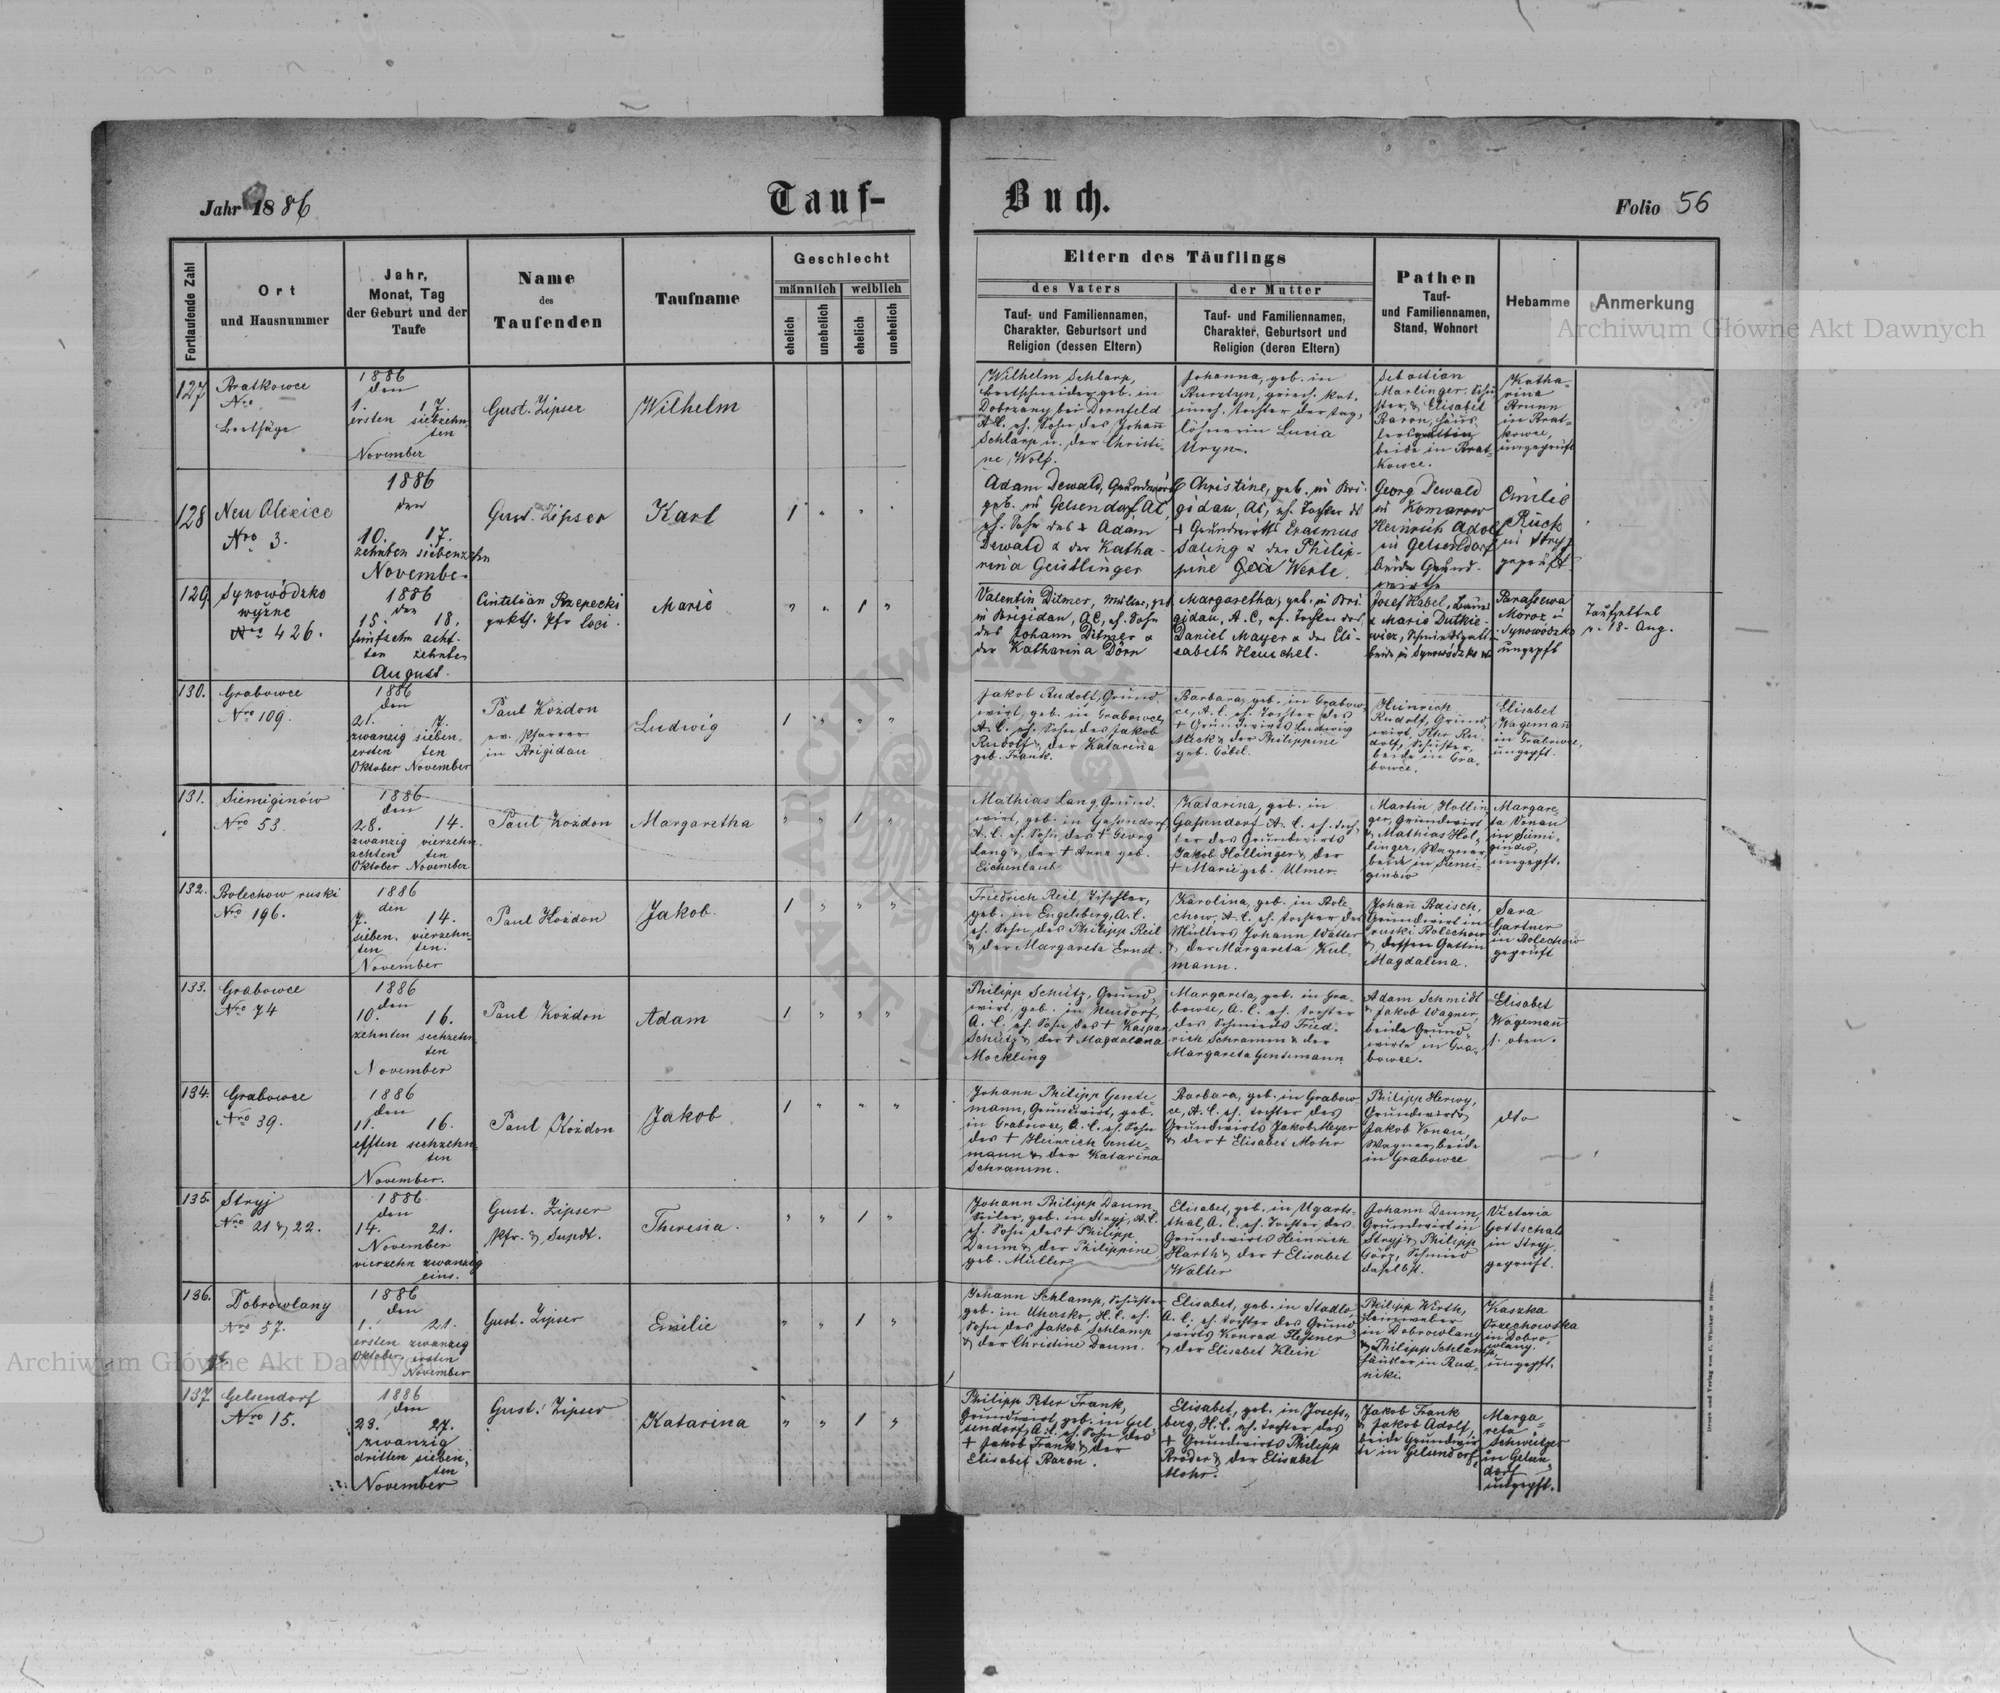 Jahr 1886
Tauf-
Buch.
Folio 56
Fortlaufende Zahl
Ort
und Hausnummer
Jahr,
Monat, Tag
der Geburt und der
Taufe
Name
des
Taufenden
Taufname
Geschlecht
männlich weiblich
ehelich
unehelich
ehelich
unehelich
Eltern des Täuflings
des Vaters
Tauf- und Familiennamen,
Charakter, Geburtsort und
Religion (dessen Eltern)
der Mutter
Tauf- und Familiennamen,
Charakter, Geburtsort und
Religion (deren Eltern)
Pathen
Tauf-
und Familiennamen,
Stand, Wohnort
Hebamme
Anmerkung
Archiwum Główne Akt Dawnych
127
Bratkowce
Nro
Brettsäge
1886
den
1. 17.
ersten siebzehn,
ten
November
Gust. Zipser
Wilhelm
Wilhelm Schlarp,
Brettschneider geb. in
Dobrzany bei Dornfeld
A.C. eh. Sohn des Johann
Schlarp u. der Christi-
ne Wolf.
Johanna, geb. in
griech. kat.
uneh. Tochter der Tag,
löhnerin Lucia
Uryn.
Sebastian
Marlinger, Schu
ster, & Elisabet
Baron, Häus
lersgattin
beide in Brat-
kowce.
Katha-
rina
Brunn
in Brat-
kowce,
ungeprüft
128
Neu Olexice
Nro 3.
1886
den
10. 17.
zehnten siebenzehn
November
Gust. Zipser
Karl
1 " " "
Adam Dewald, Grundwirt
geb. in Gelsendorf, AC,
eh. Sohn des + Adam
Dewald & der Katha-
rina Geistlinger
Christine, geb. in Bri-
gidau, AC, eh. Tochter des
+ Grundwirts Erasmus
Saling & der Philip-
pine Werle.
Georg Dewald
in Komarow
Heinrich Adolf
in Gelsendorf
beide Grund-
wirthe
Emilie
Rück
in Stryj
geprüft
129.
Synowódzko
wyżne
Nro 426.
1886
den
15. 18.
fünfzehn acht-
ten zehnten
August.
Rzepecki
grkth. Pfr loci
Marie
" " 1 "
Valentin Ditmer, Müller, geb
in Brigidau, AC, eh. Sohn
des Johann Ditmer &
der Katharina Dorn
Margaretha, geb. in Bri
gidau, A.C, eh. Tochter des
Daniel Mayer & der Eli-
sabeth Heuchel.
Josef Habel,
& Marie Dutkie-
wicz, Schmiedsgattin
beide in Synowódzko w.
Parassewa
Moroz in
Synowódzko
ungepft
Taufzettel
v. 18. Aug.
130.
Grabowce
Nro 109.
1886
den
21. 7.
zwanzig sieben-
ersten ten
Oktober November
Paul Kożdon
ev. Pfarrer
in Brigidau
Ludwig
1 " " "
Jakob Rudolf, Grund
wirt, geb. in Grabowce,
A.C. eh. Sohn des Jakob
Rudolf & der Katarina
geb. Frank.
Barbara, geb. in Grabow
ce, A.C. eh. Tochter des
+ Grundwirts Ludwig
Mock & der Philippine
geb. Göbel.
Heinrich
Rudolf, Grund,
wirt, Ru,
dolf, Schuster,
beide in Gra-
bowce.
Elisabet
Wagemann
in Grabowce,
ungepft.
131.
Siemiginów
Nro 53.
1886
den
28. 14.
zwanzig vierzehn.
achten ten
Oktober November
Paul Kożdon
Margaretha
" " 1 "
Mathias Lang, Grund,
wirt, geb. in Gassendorf,
A.C. eh. Sohn des + Georg
Lang & der + Anna geb.
Eichenlaub
Katarina, geb. in
Gassendorf A.C. eh. Toch-
ter des Grundwirts
Jakob Hollinger & der
+ Marie geb. Ulmer.
Martin Hollin
ger, Grundwirt
& Mathias Hol-
linger, Wagner
beide in Siemi-
ginow
Margare
ta Vonau
in Siemi-
ginow,
ungepft.
132.
Bolechow ruski
Nro 196.
1886
den
7. 14.
sieben. vierzehn-
ten ten.
November
Paul Kożdon
Jakob.
1 " " "
Friedrich Reil, Tischler,
geb. in Engelsberg, A.C.
eh. Sohn des Philipp Reil
& der Margareta Ernst.
Karolina, geb. in Bole
chow, A.C. eh. Tochter des
Müllers Johann Walter
& der Margareta Kul-
mann.
Johann Raisch,
Grundwirt in
ruski Bolechow
& dessen Gattin
Magdalena.
Sara
Gartner
in Bolechow
geprüft
133.
Grabowce
Nro 74
1886
den
10. 16.
zehnten sechzehn
ten
November
Paul Kożdon
Adam
1 " " "
Philipp Schütz, Grund,
wirt, geb. in Neudorf,
A.C. eh. Sohn des + Kaspar
Schütz & der + Magdalena
Mockling
Margareta, geb. in Gra-
bowce, A.C. eh. Tochter
des Schmieds Fried-
rich Schramm & der
Margareta Gentemann
Adam Schmidt
& Jakob Wagner,
beide Grund-
wirte in Gra-
bowce.
Elisabet
Wagemann
s. oben.
134.
Grabowce
Nro 39.
1886
den
11. 16.
elften sechzehn-
ten
November.
Paul Kożdon
Jakob
1 " " "
Johann Philipp Gente-
mann, Grundwirt, geb.
in Grabowce, A.C. eh. Sohn
des + Heinrich Gente-
mann & der Katarina
Schramm.
Barbara, geb. in Grabow
ce, A.C. eh. Tochter des
Grundwirts Jakob Meyer
& der + Elisabet Mohr
Philipp Herwy,
Grundwirt,
Jakob Vonau,
Wagner, beide
in Grabowce
dto
135.
Stryj
Nro 21 & 22.
1886
den
14. 21.
November
vierzehn zwanzig
eins.
Gust. Zipser
Pfr. & Supdt.
Theresia.
" " 1 "
Johann Philipp Daum
Seiler, geb. in Stryj, A.C.
eh. Sohn des + Philipp
Daum & der Philippine
geb. Müller
Elisabet, geb. in Ugarts-
thal, A.C. eh. Tochter des
Grundwirts Heinrich
Harth & der + Elisabet
Walter
Johann Daum,
Grundwirt in
Stryj & Philipp
Görz, Schmied
daselbst.
Victoria
Gottschalk
in Stryj.
geprüft.
136.
Dobrowlany
Nro 57.
1886
den
1. 21.
ersten zwanzig
Oktober ersten
November
Gust. Zipser
Emilie
" " 1 "
Johann Schlamp, Schuster
geb. in Uhersko, H.C. eh.
Sohn des Jakob Schlamp
& der Christine Daum.
Elisabet, geb. in Stadlo
A.C. eh. Tochter des Grund
wirts Konrad Flessner
& der Elisabet Klein
Philipp Wirth,
Leinweber
in Dobrowlany
& Philipp Schlamp,
Häusler in Rud-
niki.
Kaszka
Orzechowska
in Dobro-
wlany.
ungepft.
Archiwum Główne Akt Dawnych
137.
Gelsendorf
Nro 15.
1886
den
23. 27.
zwanzig
dritten sieben,
ten
November
Gust. Zipser
Katarina
" " 1 "
Philipp Peter Frank,
Grundwirt, geb. in Gel
sendorf, A.C. eh. Sohn des
+ Jakob Frank & der
Elisabet Baron.
Elisabet, geb. in Josefs-
berg, H.C. eh. Tochter des
+ Grundwirts Philipp
Bröder & der Elisabet
Mohr.
Jakob Frank
& Jakob Adolf,
beide Grundwir
te in Gelsendorf.
Marga-
reta
Schweitzer
in Gelsen-
dorf
ungepft.
ARCHIWUM GŁÓWNE AKT DAWNYCH